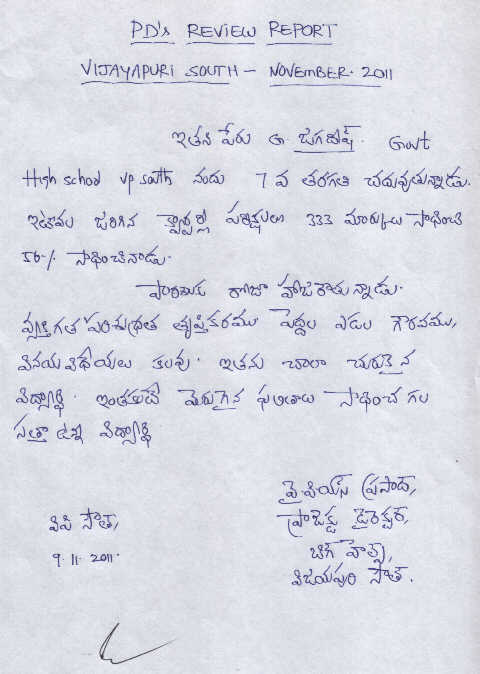 PD's REVIEW REPORT
VIJAYAPURI SOUTH - NOVEMBER. 2011
ఇతని పేరు G. జగదీష్. Govt
High school vp south నందు 7 వ తరగతి చదువుతున్నాడు.
ఇటీవల జరిగిన క్వార్టర్లీ పరీక్షలు 333 మార్కులు సాధించి
56% సాధించినాడు.
పాఠశాలకు రోజూ హాజరౌతున్నాడు.
వ్యక్తిగత పరిశుభ్రత తృప్తికరము పెద్దల ఎడల గౌరవము,
వినయ విధేయలు కలవు. ఇతను చాలా చురుకైన
విద్యార్థి. ఇంతకంటే మెరుగైన ఫలితాలు సాధించ గల
సత్తా ఉన్న విద్యార్థి
వై.పి.యస్ ప్రసాద్,
ప్రాజెక్టు డైరెక్టర్,
వి.పి సౌత్,
బిగ్ హెల్ప్,
9.11.2011.
విజయపురి సౌత్.